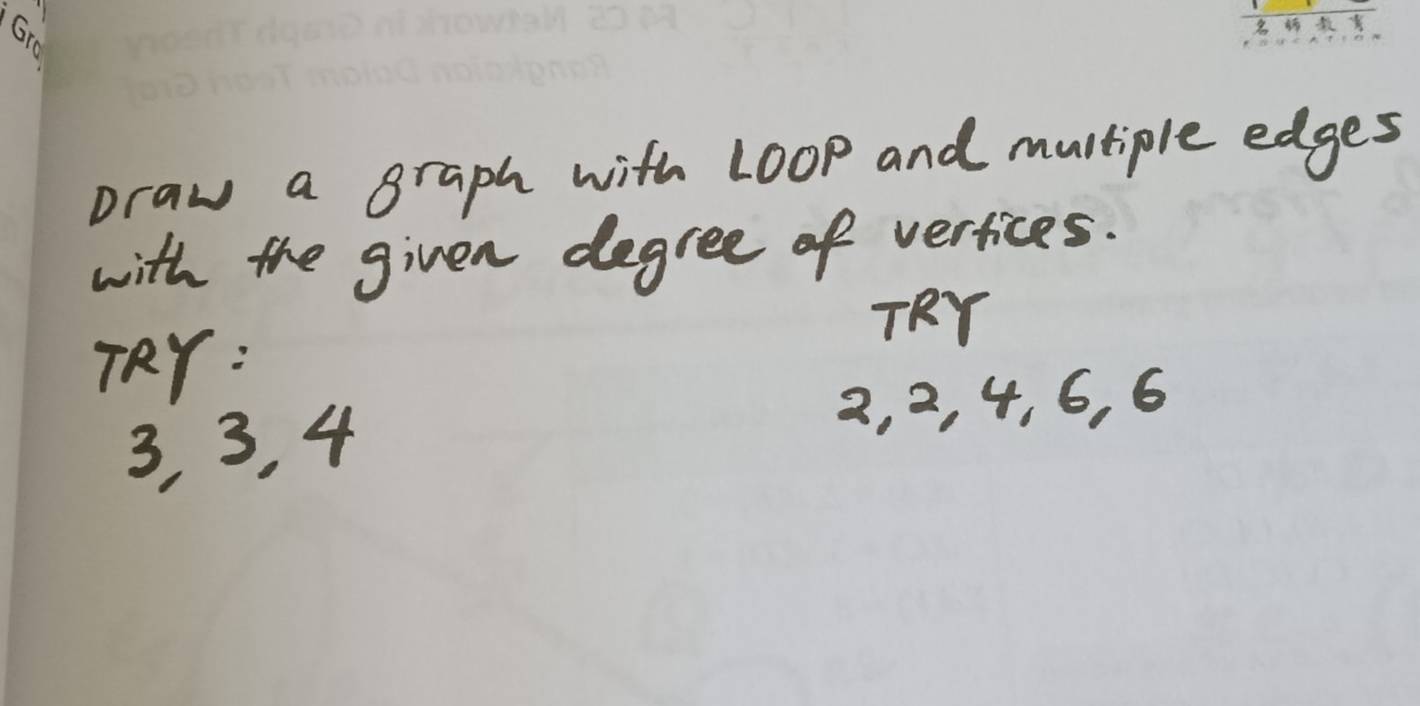 Gra
名师教育
EDUCATION
Draw a graph with LOOP and multiple edges
with the given degree of vertices.
TRY:
3, 3, 4
TRY
2, 2, 4, 6, 6